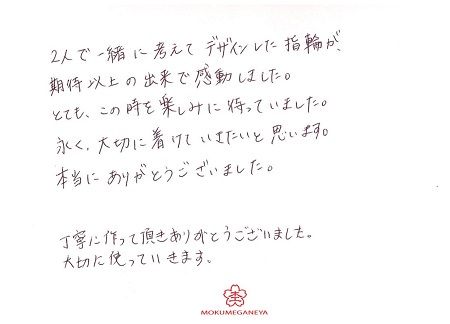 2人で一緒に考えてデザインした指輪が、
期待以上の出来で感動しました。
とても、この時を楽しみに待っていました。
永く、大切に着けていきたいと思います。
本当にありがとうございました。
丁寧に作って頂きありがとうございました。
大切に使っていきます。
MOKUMEGANEYA